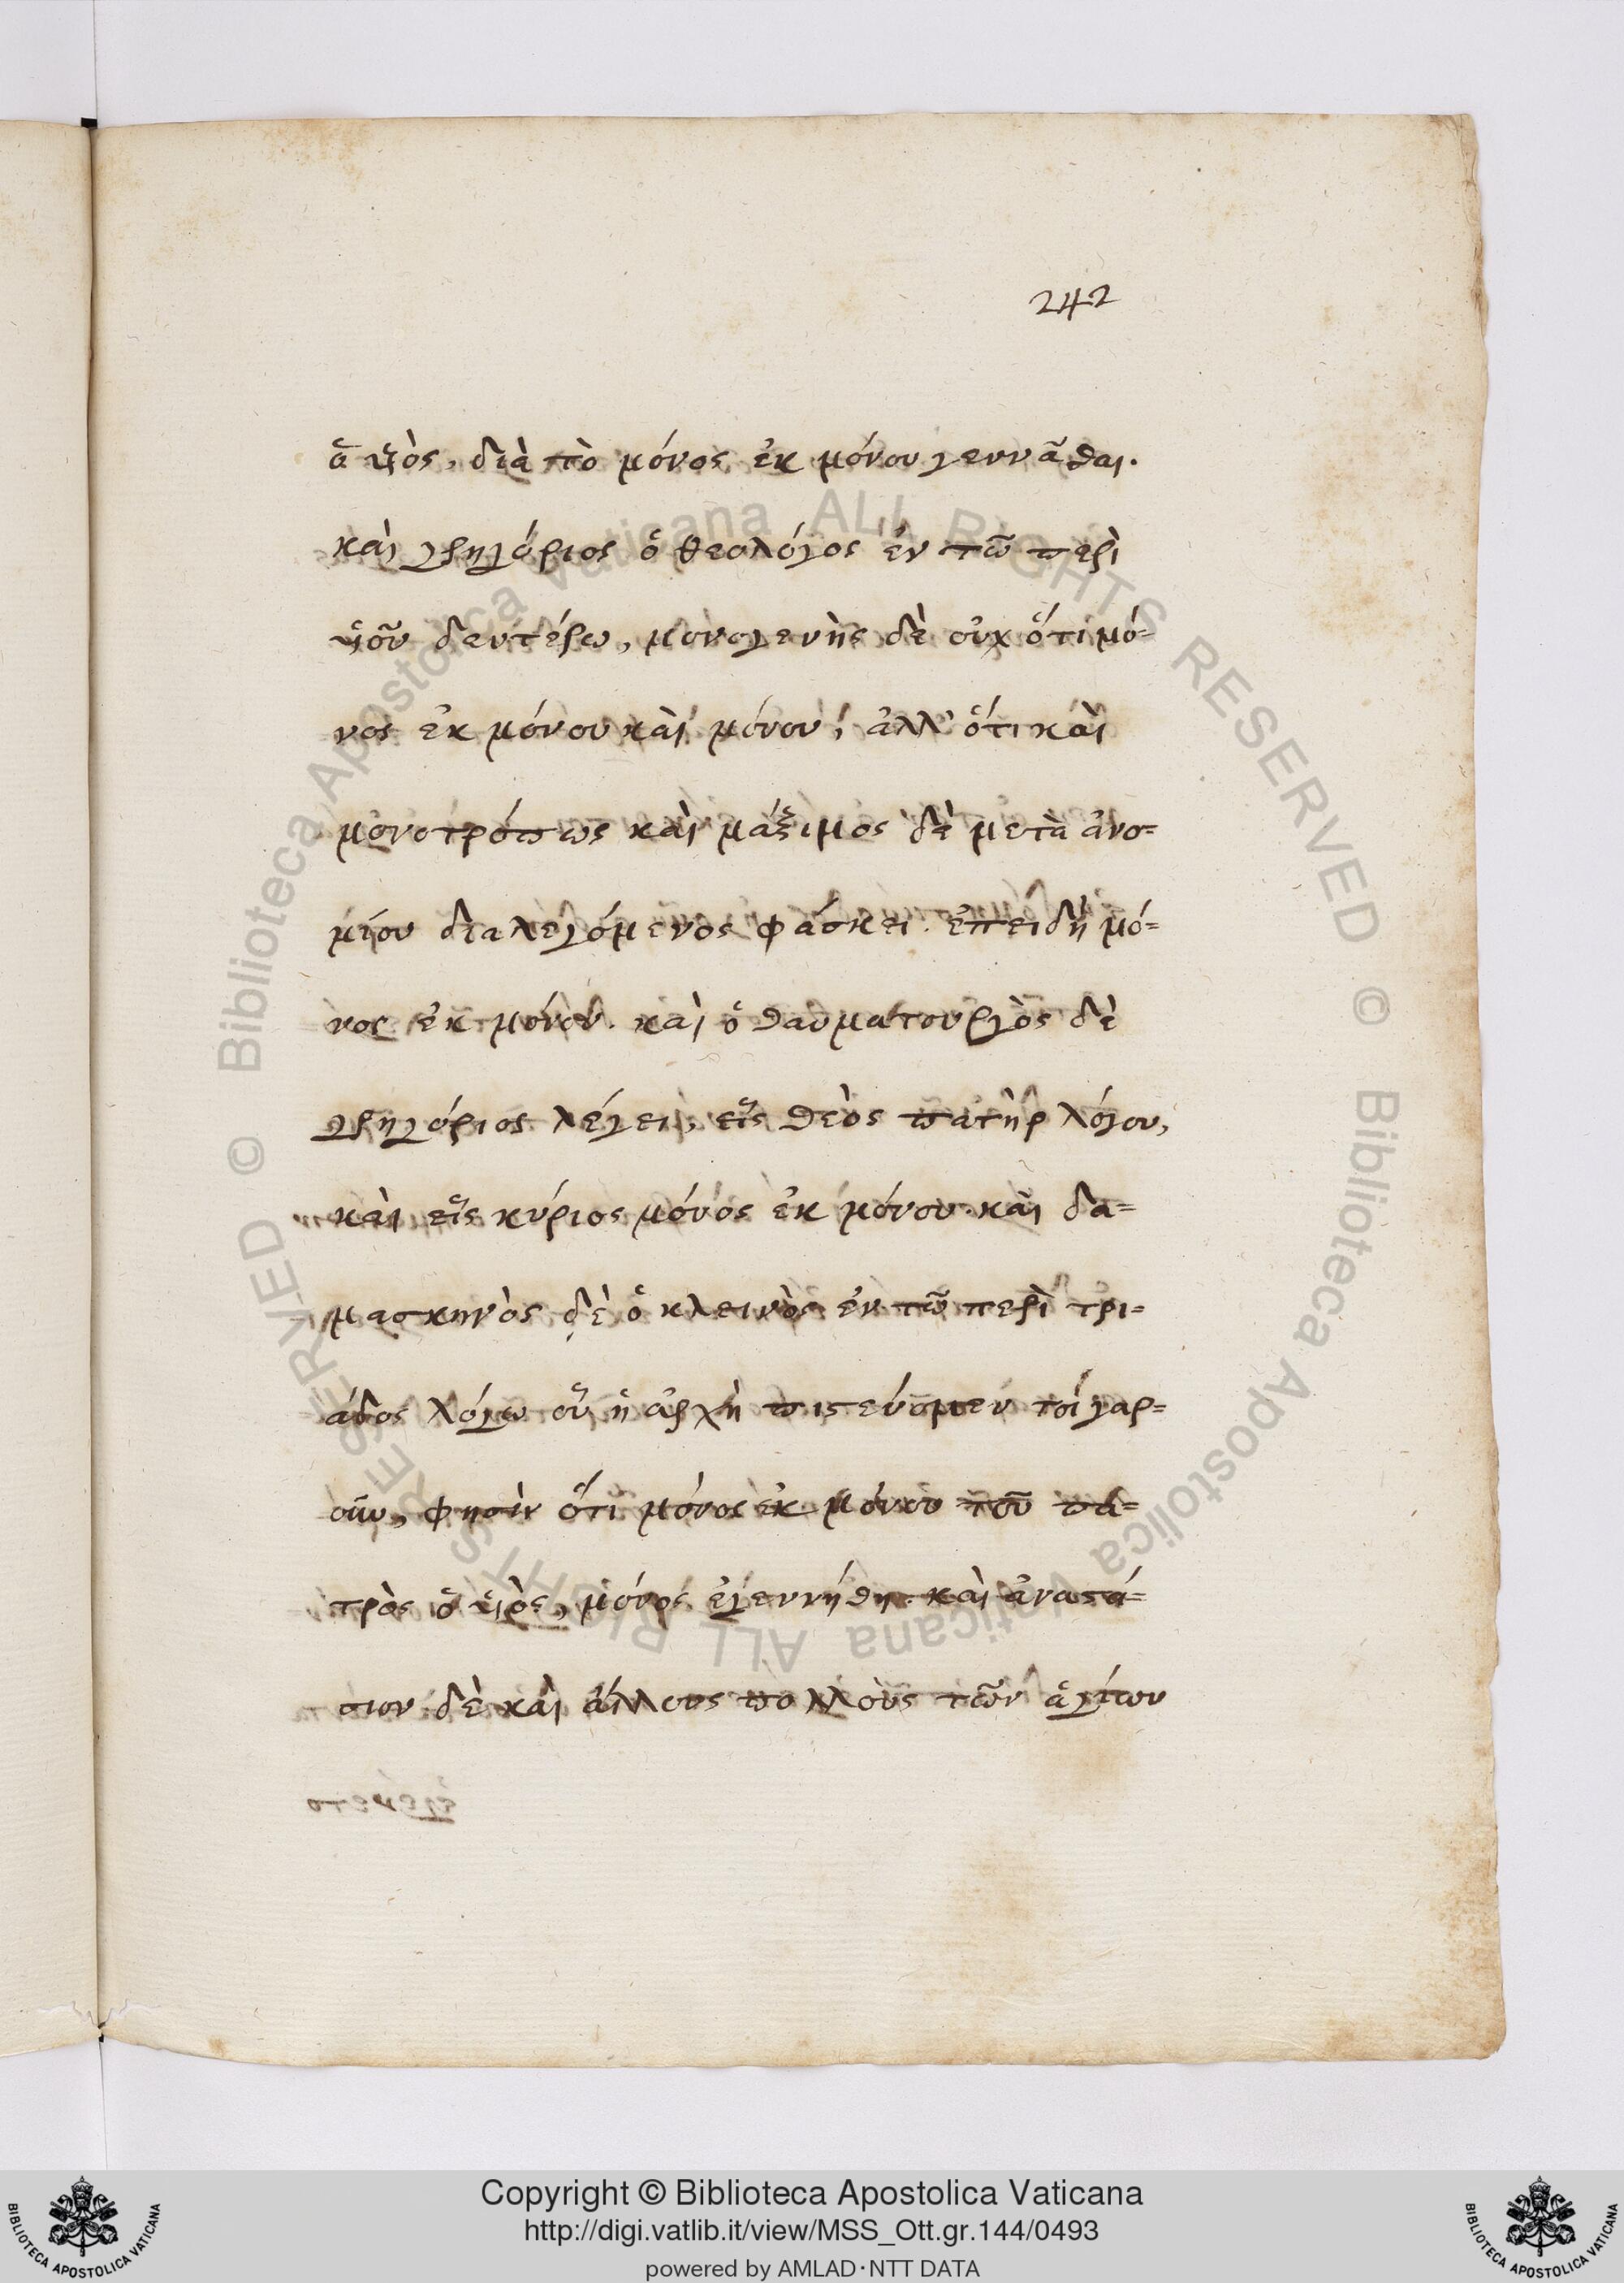 242
ὁ υἱὸς, διὰ τὸ μόνος ἐκ μόνου γεννᾶσθαι.
καὶ γρηγόριος ὁ θεολόγος ἐν τῶ περὶ
υἱοῦ δευτέρω, μονογενὴς δὲ οὐχ ὅτι μό-
νος ἐκ μόνου καὶ μόνον, ἀλλ' ὅτι καὶ
μονοτρόπως καὶ μάξιμος δὲ μετὰ ἀνο-
μίου διαλεγόμενος φάσκει. ἐπειδὴ μό-
νος ἐκ μόνου. καὶ ὁ θαυματουργὸς δὲ
γρηγόριος λέγει, εἷς θεὸς πατὴρ λόγου,
καὶ εἷς κύριος μόνος ἐκ μόνου. καὶ δα-
μασκηνὸς δὲ ὁ κλεινὸς ἐν τῶ περὶ τρι-
άδος λόγω οὗ ἡ ἀρχὴ πιστεύομεν τοίγαρ-
οῦν, φησὶν ὅτι μόνος ἐκ μόνου τοῦ πα-
τρὸς ὁ υἱὸς, μόνος ἐγεννήθη. καὶ ἀναστά-
σιον δὲ καὶ ἄλλους πολλοὺς τῶν ἁγίων
Copyright © Biblioteca Apostolica Vaticana
http://digi.vatlib.it/view/MSS_Ott.gr.144/0493
powered by AMLAD·NTT DATA
BIBLIOTECA APOSTOLICA VATICANA
BIBLIOTECA APOSTOLICA VATICANA
© Biblioteca Apostolica Vaticana ALL RIGHTS RESERVED
© Biblioteca Apostolica Vaticana ALL RIGHTS RESERVED